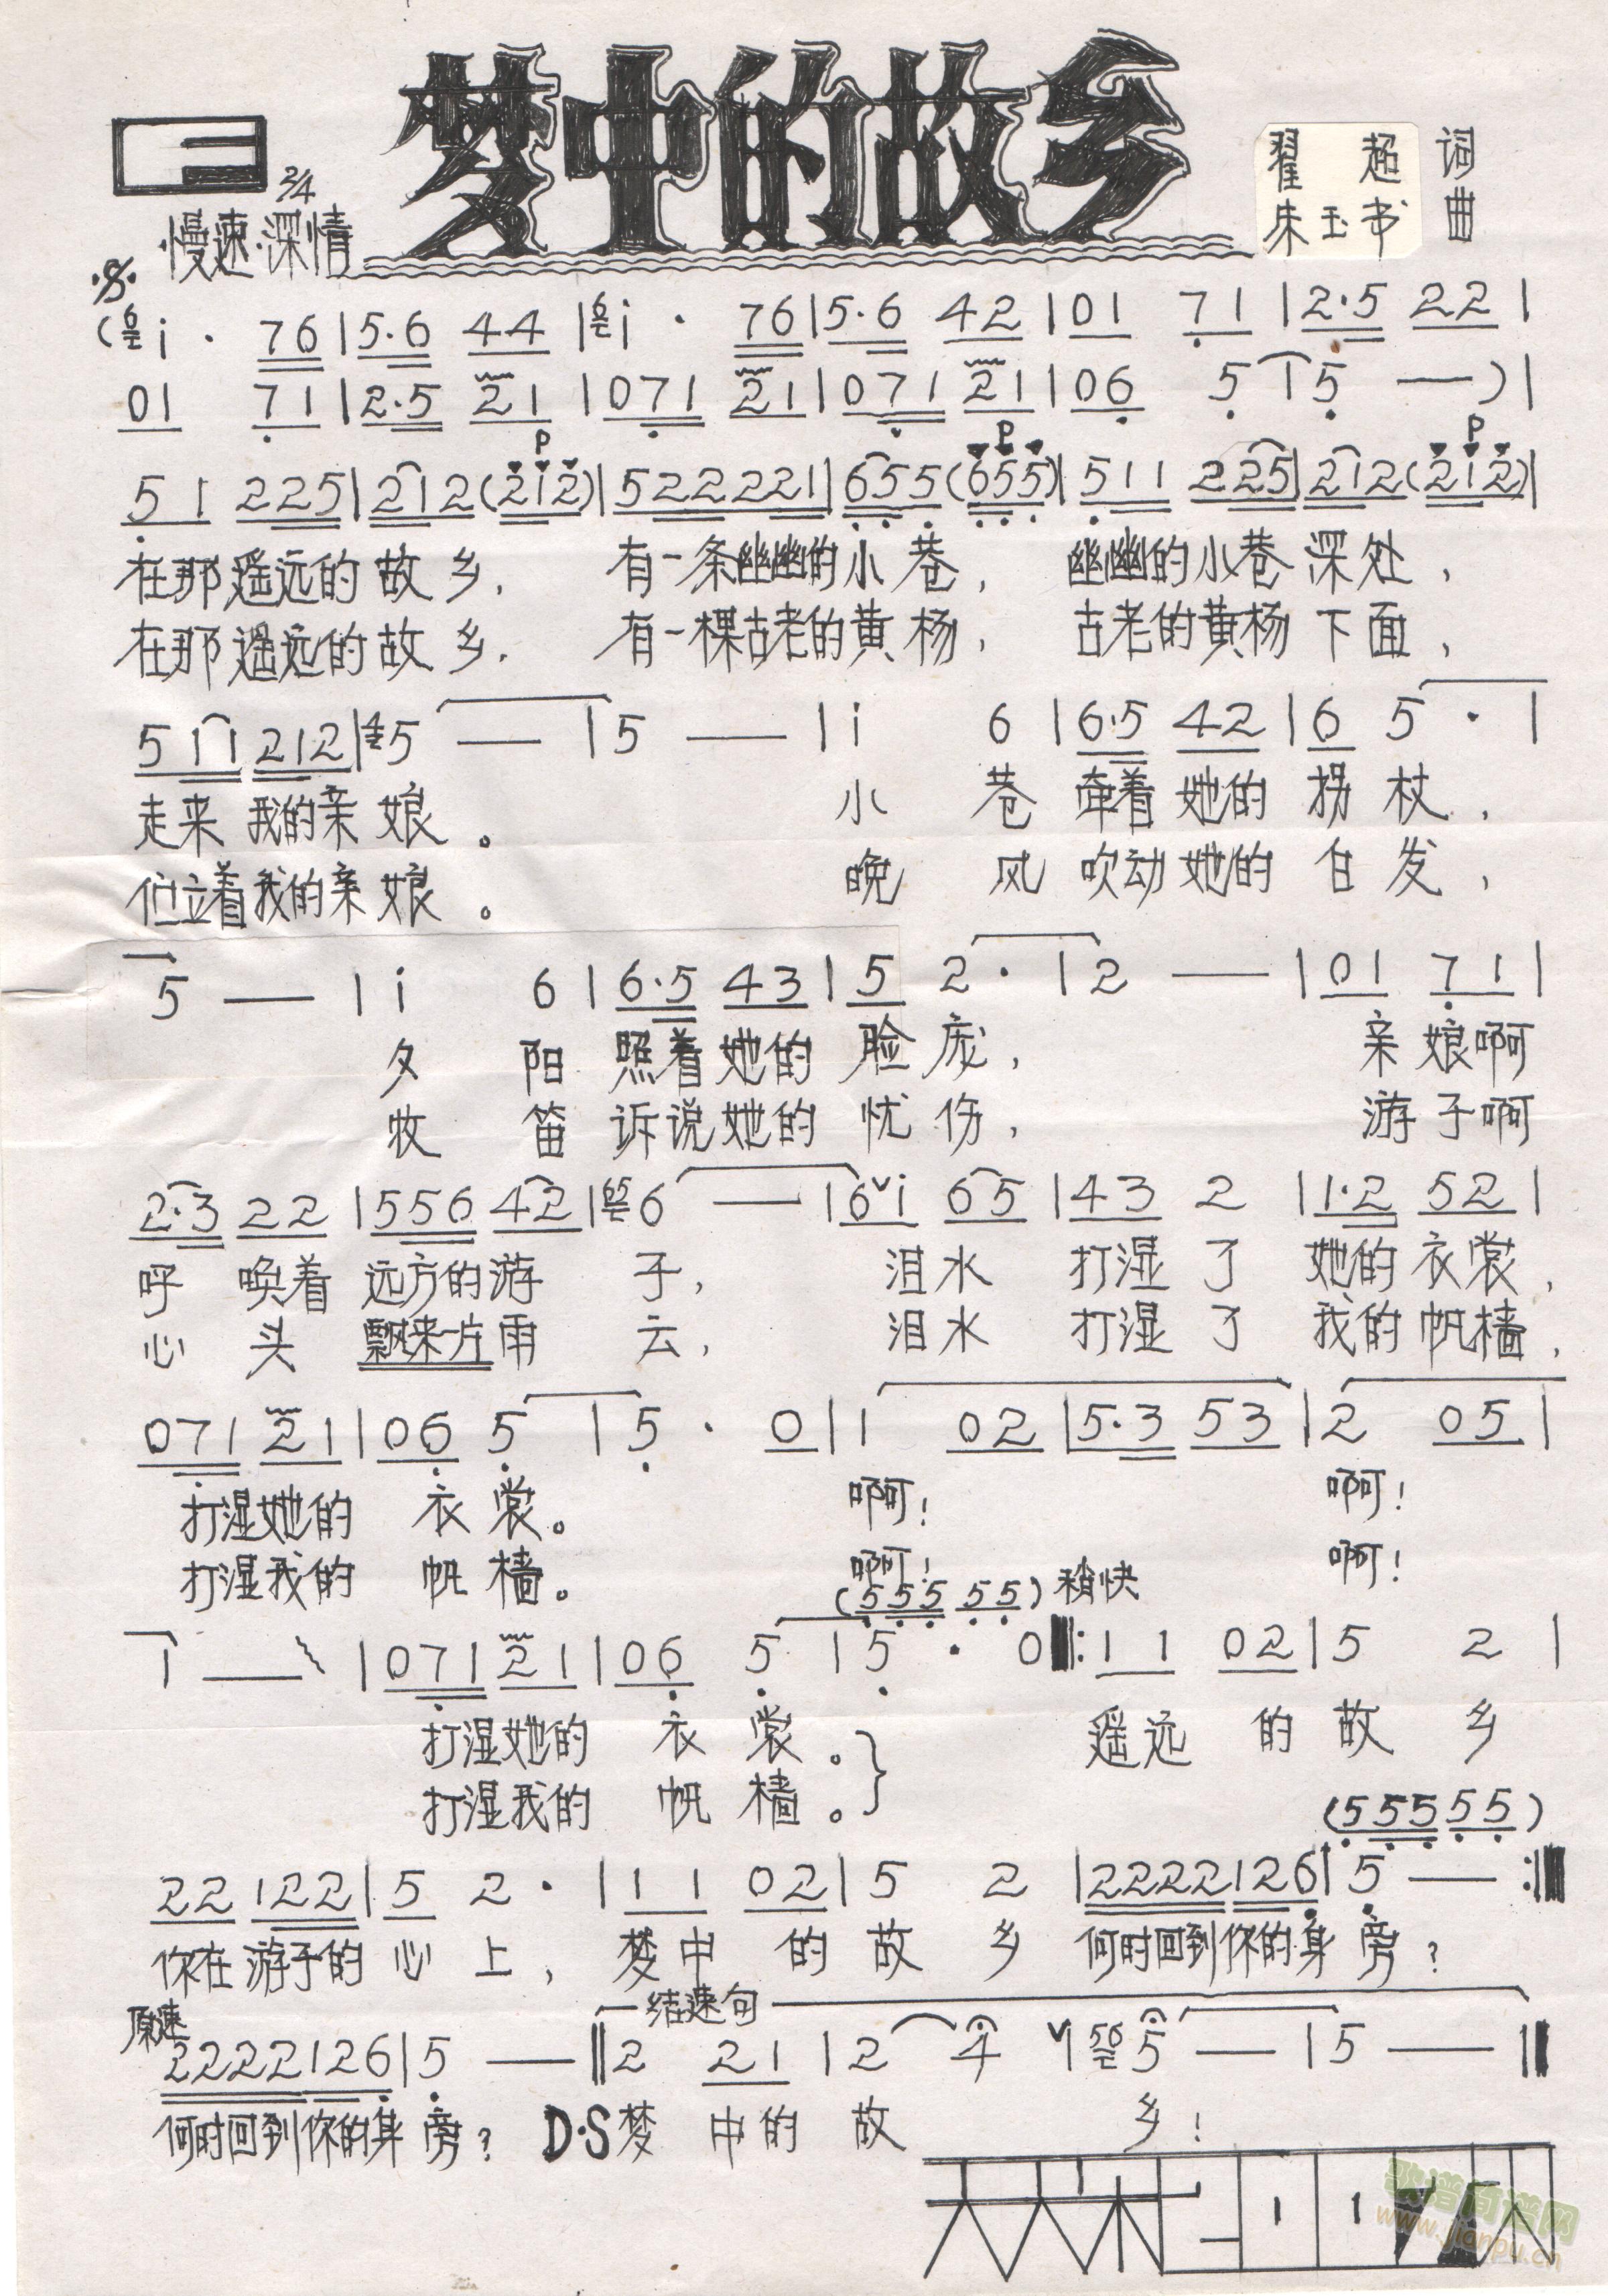 梦中的故乡
2/4
慢速·深情
翟 超 词
朱玉书 曲
(6 i · 76 | 5·6 44 | 6 i · 76 | 5·6 42 | 01 71 | 2·5 22 |
01 71 | 2·5 21 | 071 21 | 071 21 | 06 5 | 5 — ) |
P P P
51 225 | 212 (212) | 522 221 | 655 (655) | 511 225 | 212 (212) |
在那遥远的故乡, 有一条幽幽的小巷, 幽幽的小巷深处,
在那遥远的故乡, 有一棵古老的黄杨, 古老的黄杨下面,
511 212 | 4 5 — | 5 — | i 6 | 6·5 42 | 6 5 · |
走来我的亲娘。 小巷牵着她的拐杖,
伫立着我的亲娘。 晚风吹动她的白发,
5 — | i 6 | 6·5 43 | 5 2 · | 2 — | 01 71 |
夕阳照着她的脸庞, 亲娘啊
牧笛诉说她的忧伤, 游子啊
2·3 22 | 556 42 | 65 6 — | 6 i 65 | 43 2 | 1·2 52 |
呼唤着远方的游子, 泪水打湿了她的衣裳,
心头飘来一片雨云, 泪水打湿了我的帆樯,
071 21 | 06 5 | 5 · 0 | 1 02 | 5·3 53 | 2 05 |
打湿她的衣裳。 啊! 啊!
打湿我的帆樯。 啊! 啊!
(555 55) 稍快
1 — | 071 21 | 06 5 | 5 · 0 ||: 11 02 | 5 2 |
打湿她的衣裳。 遥远的故乡
打湿我的帆樯。
(555 55)
22 122 | 5 2 · | 11 02 | 5 2 | 2222 126 | 5 — :||
你在游子的心上, 梦中的故乡何时回到你的身旁?
原速 结速句
2222 126 | 5 — || 2 21 | 2 4 | 56 5 — | 5 — ||
何时回到你的身旁? D·S 梦中的故乡!
歌谱简谱网
www.jianpu.cn